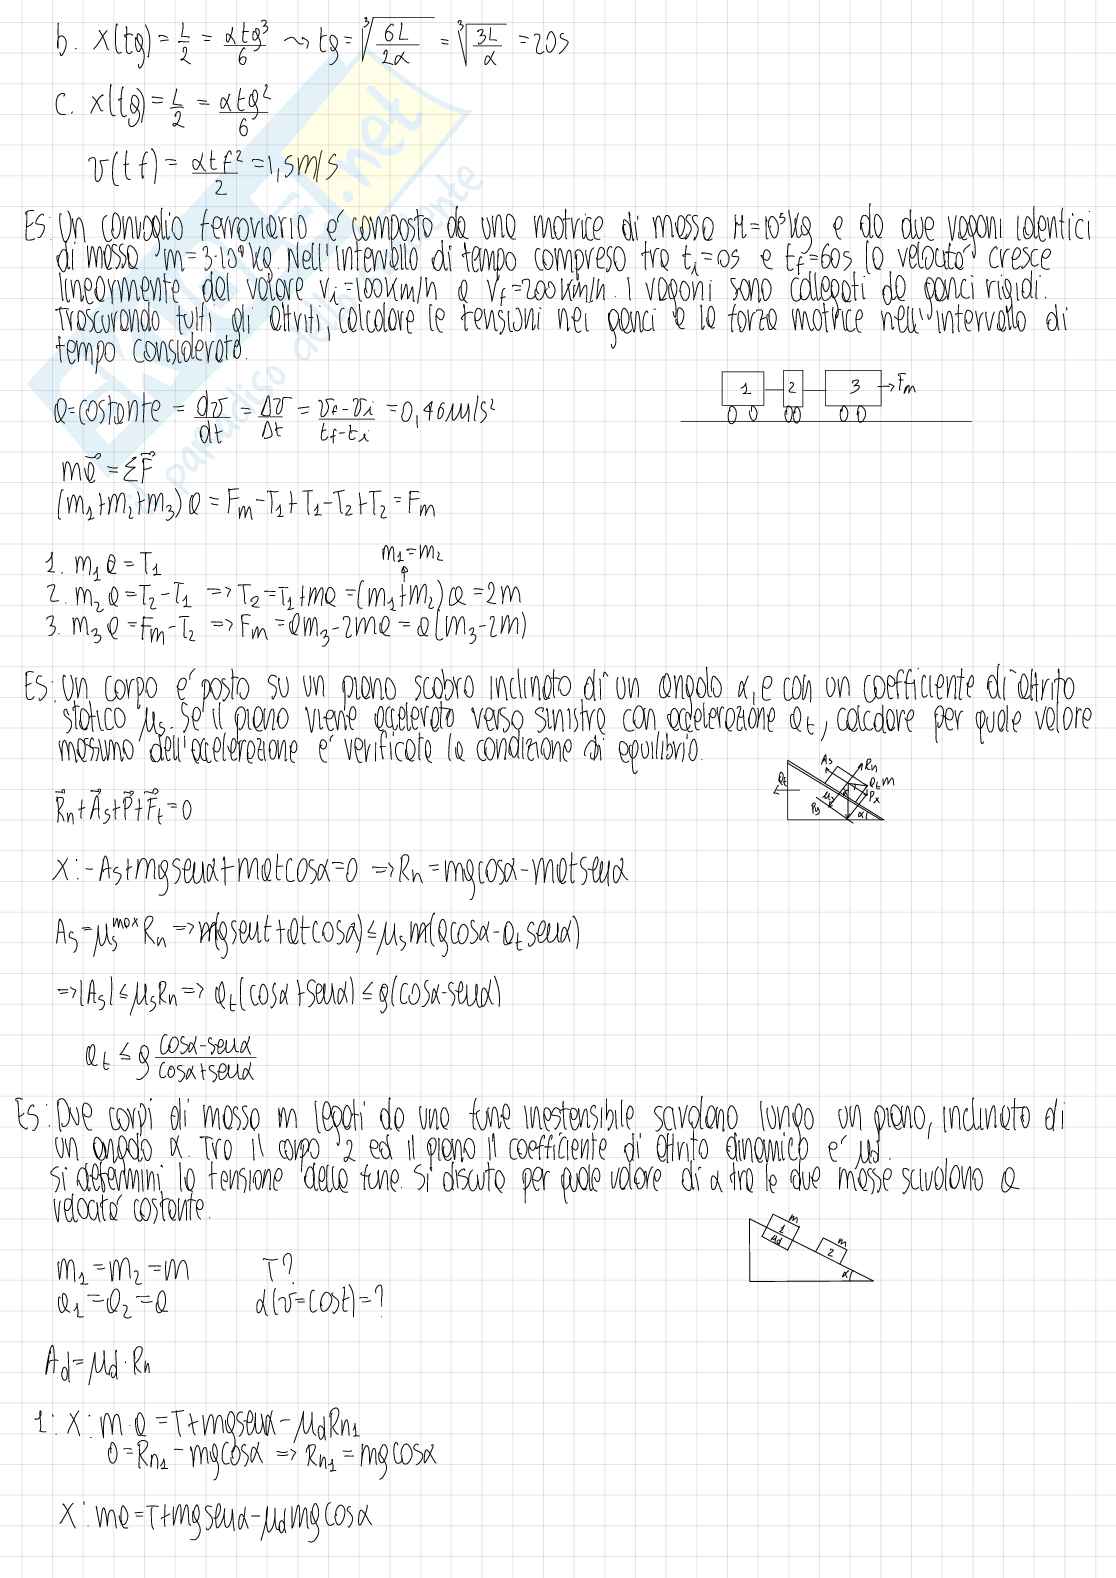 b. x(tg) = L/2 = αtg³/6 ⇝ tg = ∛(6L/2α) = ∛(3L/α) = 20s
c. x(tg) = L/2 = αtg²/6
v(tf) = αtf²/2 = 1,5m/s
Es: Un convoglio ferroviario é composto da una motrice di massa M=10⁵kg e da due vagoni identici
di massa m=3·10⁴ kg. Nell'intervallo di tempo compreso tra ti=0s e tf=60s la velocitá cresce
linearmente dal valore vi=100km/h a vf=200km/h. I vagoni sono collegati da ganci rigidi.
Trascurando tutti gli attriti, calcolare le tensioni nei ganci e la forza motrice nell'intervallo di
tempo considerato.
1 2 3 → Fm
a=costante = dv/dt = Δv/Δt = (vf-vi)/(tf-ti) = 0,46m/s²
ma⃗ = ΣF⃗
(m₁+m₂+m₃) a = Fm-T₁+T₁-T₂+T₂ = Fm
m₁=m₂
1. m₁ a = T₁
2. m₂ a = T₂-T₁ => T₂=T₁+ma =(m₁+m₂) a = 2m
3. m₃ a = Fm-T₂ => Fm = am₃-2ma = a(m₃-2m)
Es: Un corpo é posto su un piano scabro inclinato di un angolo α, e con un coefficiente di attrito
statico μs. Se il piano viene accelerato verso sinistra con accelerazione at, calcolare per quale valore
massimo dell'accelerazione é verificata la condizione di equilibrio.
As Rn at m Px at Py α
R⃗n+A⃗s+P⃗+F⃗t=0
X: -As+mgsenα+matcosα=0 => Rn=mgcosα-matsenα
As=μs^max Rn => m(gsent+atcosα) ≤ μsm(gcosα-atsenα)
=> |As| ≤ μsRn => at(cosα+senα) ≤ g(cosα-senα)
at ≤ g (cosα-senα)/(cosα+senα)
Es: Due corpi di massa m legati da una fune inestensibile scivolano lungo un piano, inclinato di
un angolo α. Tra il corpo 2 ed il piano il coefficiente di attrito dinamico é μd.
Si determini la tensione della fune. Si discuta per quale valore di α tra le due masse scivolano a
velocitá costante.
m 1 μd m 2 α
m₁=m₂=m T?
a₁=a₂=a α(v=cost)=?
Ad=μd·Rn
1: X: m·a = T+mgsenα-μdRn₁
0=Rn₁-mgcosα => Rn₁=mgcosα
X: ma=T+mgsenα-μdmgcosα